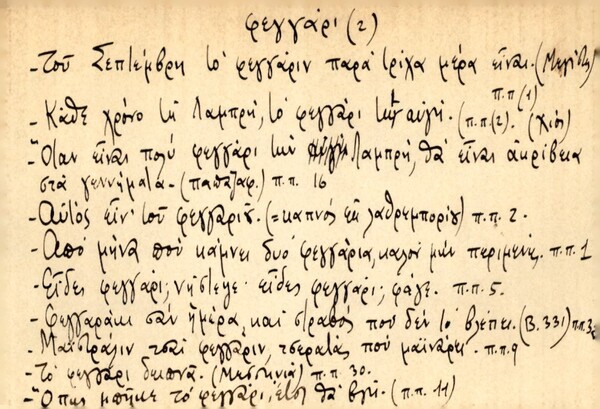 φεγγάρι (2)
- Τοῦ Σεπτέμβρη το' φεγγάριν παρὰ τρίχα μέρα εἶναι. (Μεγίστη)
π.π (1)
- Κάθε χρόνο τη Λαμπρή, το' φεγγάρι τὴν αὐγή. (π.π(2). (Χίος)
- Ὅταν εἶναι πολύ φεγγάρι τὴν Λαμπρή, θὰ εἶναι ἀκρίβεια
στὰ γεννήματα - (παπαζαφ.) π.π. 16
- Αὐτὸς εἶν' τοῦ φεγγαριοῦ. (= καπνὸς ἐκ λαθρεμπορίου) π.π. 2.
- Ἀπό μῆνα πού κάμνει δυο φεγγάρια, καλοί μήν περιμένῃς. π.π. 1
- Εἶδες φεγγάρι; νήστεψε· εἶδες φεγγάρι; φάγε. π.π. 5.
- Φεγγαράκι σάν ἡμέρα, καί στραβός πού δέν το' βλέπει. (Β. 331) π.π. 3.
- Μαϊστράλιν τσαί φεγγάριν, τσερατᾶς πού μαϊνάρει. π.π. 9
- Το' φεγγάρι δειπνᾶ. (Μεσσηνία) π.π 30.
- Ὅπως μπῆκε τό φεγγάρι, ἔτσι θὰ βγῆ. (π.π. 11)